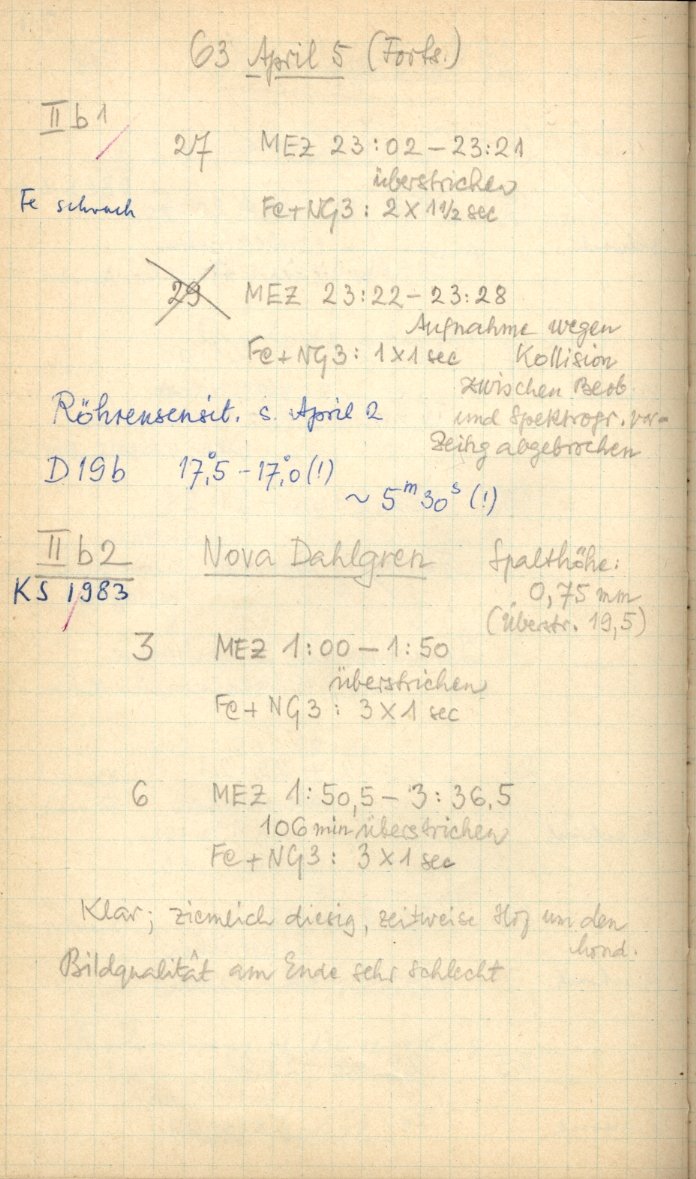 63 April 5 (Forts.)
II b 1
27 MEZ 23:02 – 23:21
überstrichen
Fe schwach
Fe+NG3: 2 X 1 1/2 sec
29 MEZ 23:22 – 23:28
Aufnahme wegen
Fe+NG3: 1x1 sec Kollision
zwischen Beob.
Röhrensensit. s. April 2
und Spektrogr. vor-
zeitig abgebrochen
D19b 17°,5 – 17°,0 (!)
~ 5m 30s (!)
II b 2 Nova Dahlgren Spalthöhe:
KS 1983
0,75 mm
(Überstr. 19,5)
3 MEZ 1:00 – 1:50
überstrichen
Fe+NG3: 3 X 1 sec
6 MEZ 1:50,5 – 3:36,5
106 min überstrichen
Fe+NG3: 3 X 1 sec
Klar; ziemlich diesig, zeitweise Hof um den
Mond.
Bildqualität am Ende sehr schlecht